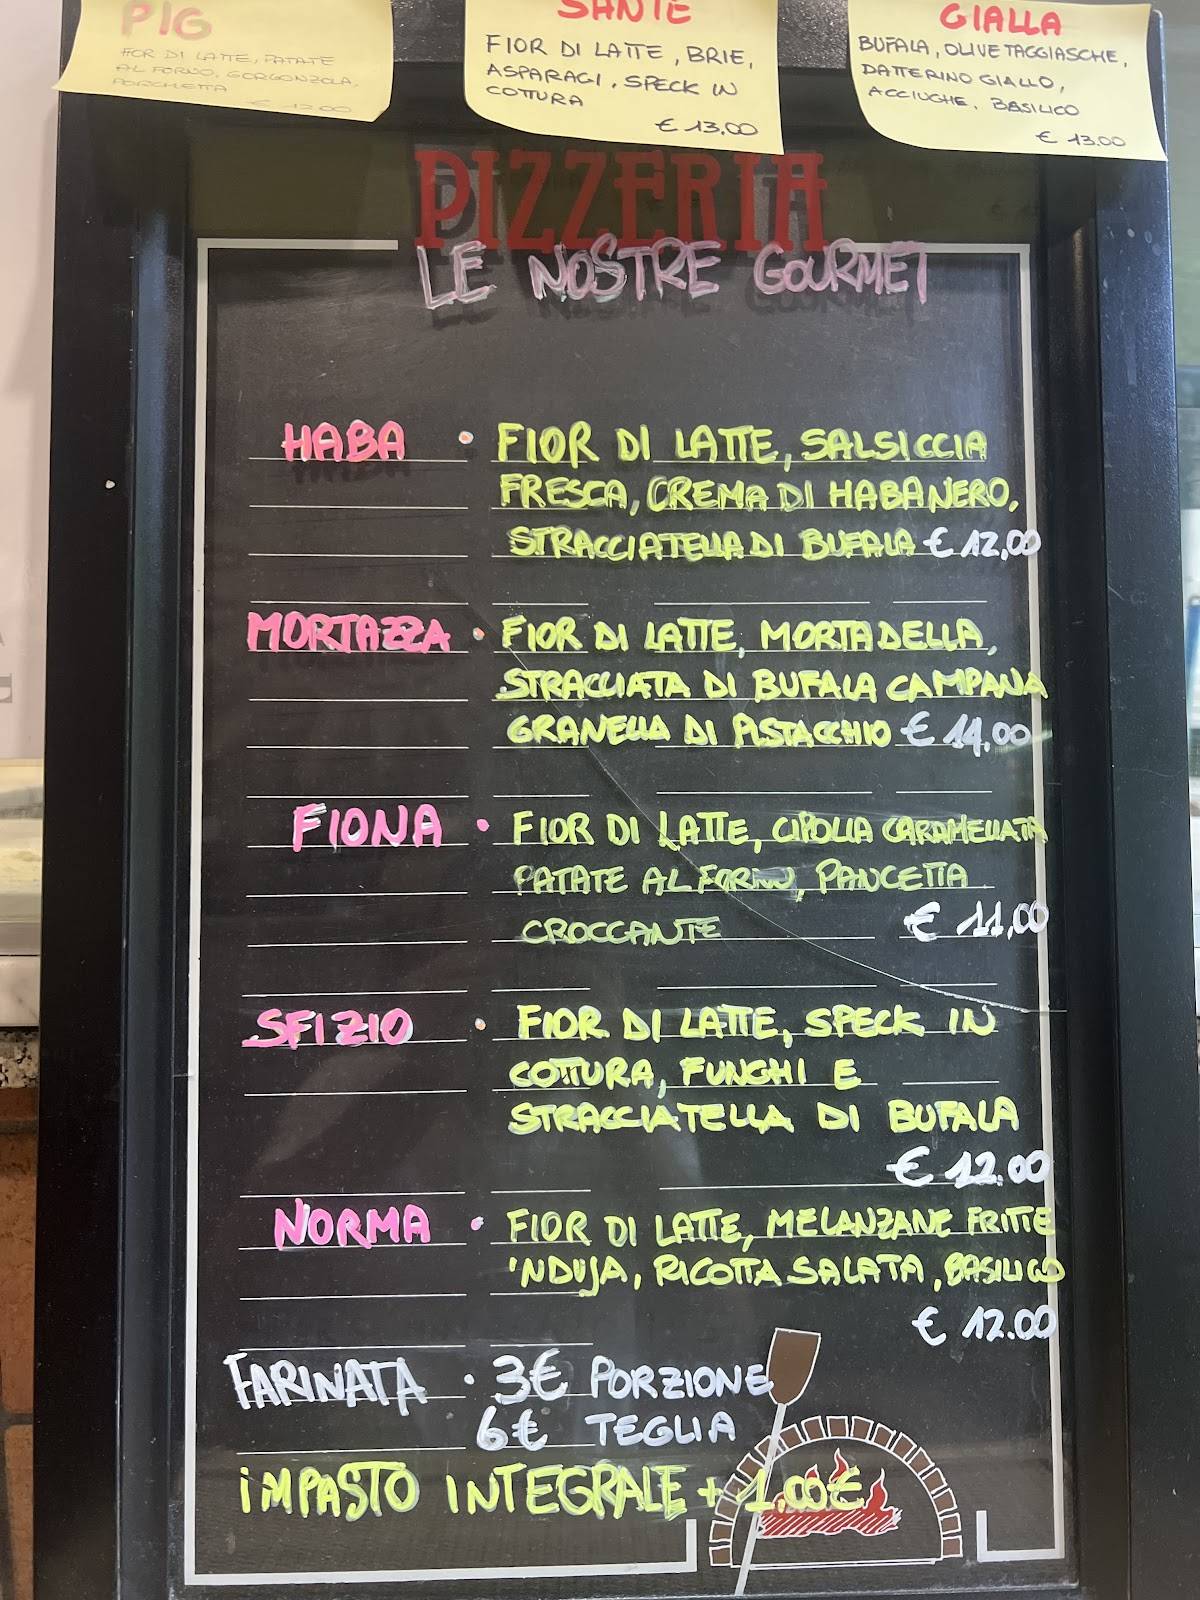 PIG
FIOR DI LATTE, PATATE
AL FORNO, GORGONZOLA,
PORCHETTA
€ 12.00
SANTÉ
FIOR DI LATTE, BRIE,
ASPARAGI, SPECK IN
COTTURA
€ 13.00
GIALLA
BUFALA, OLIVE TAGGIASCHE,
DATTERINO GIALLO,
ACCIUGHE, BASILICO
€ 13.00
PIZZERIA
LE NOSTRE GOURMET
HABA · FIOR DI LATTE, SALSICCIA
FRESCA, CREMA DI HABANERO,
STRACCIATELLA DI BUFALA € 12,00
MORTAZZA · FIOR DI LATTE, MORTADELLA,
STRACCIATA DI BUFALA CAMPANA
GRANELLA DI PISTACCHIO € 14.00
FIONA · FIOR DI LATTE, CIPOLLA CARAMELLATA
PATATE AL FORNO, PANCETTA
CROCCANTE € 11,00
SFIZIO · FIOR DI LATTE, SPECK IN
COTTURA, FUNGHI E
STRACCIATELLA DI BUFALA
€ 12.00
NORMA · FIOR DI LATTE, MELANZANE FRITTE
'NDUJA, RICOTTA SALATA, BASILICO
€ 12.00
FARINATA · 3€ PORZIONE
6€ TEGLIA
IMPASTO INTEGRALE + 1.00€